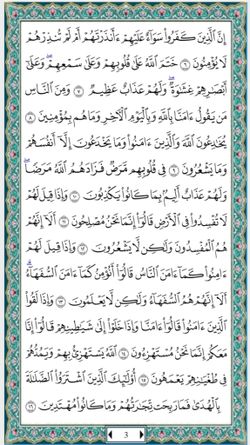 إِنَّ الَّذِينَ كَفَرُوا سَوَاءٌ عَلَيْهِمْ ءَأَنذَرْتَهُمْ أَمْ لَمْ تُنذِرْهُمْ
لَا يُؤْمِنُونَ ٦ خَتَمَ اللَّهُ عَلَىٰ قُلُوبِهِمْ وَعَلَىٰ سَمْعِهِمْ ۖ وَعَلَىٰ
أَبْصَارِهِمْ غِشَاوَةٌ ۖ وَلَهُمْ عَذَابٌ عَظِيمٌ ٧ وَمِنَ النَّاسِ
مَن يَقُولُ ءَامَنَّا بِاللَّهِ وَبِالْيَوْمِ الْآخِرِ وَمَا هُم بِمُؤْمِنِينَ ٨
يُخَادِعُونَ اللَّهَ وَالَّذِينَ ءَامَنُوا وَمَا يَخْدَعُونَ إِلَّا أَنفُسَهُمْ
وَمَا يَشْعُرُونَ ٩ فِي قُلُوبِهِم مَّرَضٌ فَزَادَهُمُ اللَّهُ مَرَضًا ۖ
وَلَهُمْ عَذَابٌ أَلِيمٌ بِمَا كَانُوا يَكْذِبُونَ ١٠ وَإِذَا قِيلَ لَهُمْ
لَا تُفْسِدُوا فِي الْأَرْضِ قَالُوا إِنَّمَا نَحْنُ مُصْلِحُونَ ١١ أَلَا إِنَّهُمْ
هُمُ الْمُفْسِدُونَ وَلَٰكِن لَّا يَشْعُرُونَ ١٢ وَإِذَا قِيلَ لَهُمْ
ءَامِنُوا كَمَا ءَامَنَ النَّاسُ قَالُوا أَنُؤْمِنُ كَمَا ءَامَنَ السُّفَهَاءُ ۗ
أَلَا إِنَّهُمْ هُمُ السُّفَهَاءُ وَلَٰكِن لَّا يَعْلَمُونَ ١٣ وَإِذَا لَقُوا
الَّذِينَ ءَامَنُوا قَالُوا ءَامَنَّا وَإِذَا خَلَوْا إِلَىٰ شَيَاطِينِهِمْ قَالُوا إِنَّا
مَعَكُمْ إِنَّمَا نَحْنُ مُسْتَهْزِءُونَ ١٤ اللَّهُ يَسْتَهْزِئُ بِهِمْ وَيَمُدُّهُمْ
فِي طُغْيَانِهِمْ يَعْمَهُونَ ١٥ أُولَٰئِكَ الَّذِينَ اشْتَرَوُا الضَّلَالَةَ
بِالْهُدَىٰ فَمَا رَبِحَت تِّجَارَتُهُمْ وَمَا كَانُوا مُهْتَدِينَ ١٦
3